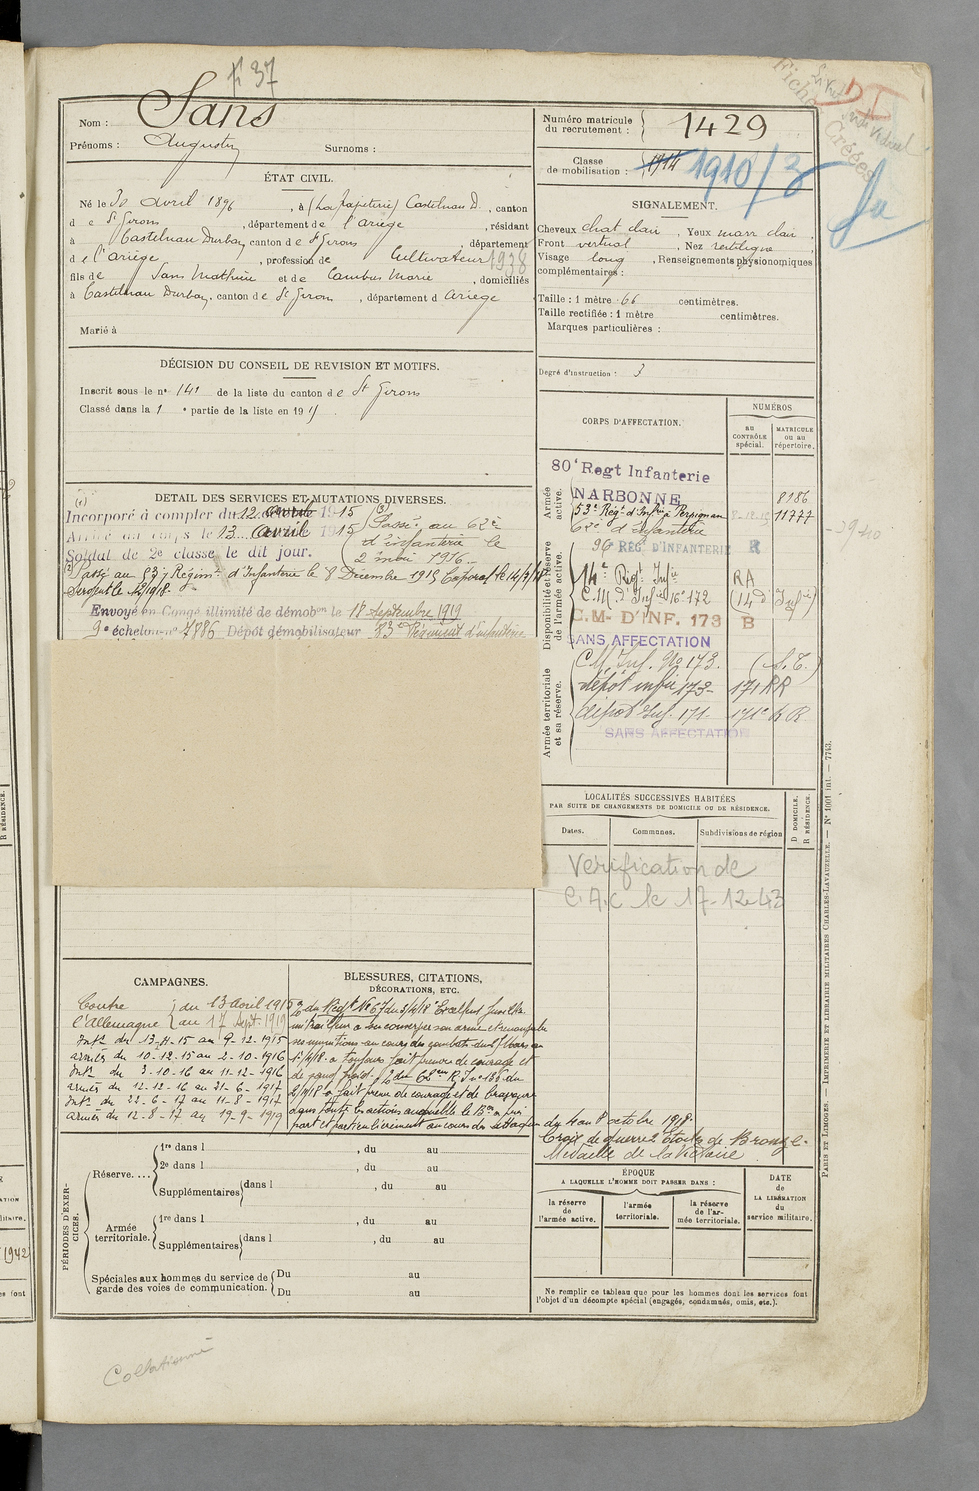 f 37
Nom : Sans
Prénoms : Augustin Surnoms :
ÉTAT CIVIL.
Né le 30 avril 1896, à (La Papeterie) Castelnau D., canton
d e St Girons, département de l'ariège, résidant
à Castelnau Durban, canton d e St Girons, département
d e l'ariège, profession de Cultivateur 1938
fils de Sans Mathieu et de Cambus Marie, domiciliés
à Castelnau Durban, canton d e St Girons, département d ariège
Marié à
DÉCISION DU CONSEIL DE REVISION ET MOTIFS.
Inscrit sous le n° 141 de la liste du canton d e St Girons
Classé dans la 1 e partie de la liste en 19 15
DÉTAIL DES SERVICES ET MUTATIONS DIVERSES.
(1) Incorporé à compter du 12 avril 1915
Arrivé au corps le 13 avril 1915
Soldat de 2e classe le dit jour.
(3) Passé au 62e
d'infanterie le
2 mai 1916
(2) Passé au 53e Régimt d'Infanterie le 8 Décembre 1915 Caporal le 14/7/18
Sergent le
Envoyé en Congé illimité de démobon le 18 Septembre 1919
9e échelon - n° 7886 Dépôt démobilisateur 83e Régiment d'infanterie
CAMPAGNES.
Contre l'Allemagne { du 13 avril 1915
au 17 Sept. 1919
Intr du 13-11-15 au 9-12-1915
armées du 10-12-15 au 2-10-1916
Intr du 3-10-16 au 11-12-1916
armées du 12-12-16 au 21-6-1917
Intr du 22-6-17 au 11-8-1917
armées du 12-8-17 au 19-9-1919
BLESSURES, CITATIONS,
DÉCORATIONS, ETC.
du Régt No 67 du 5/4/18 Excellent fusilier
mitrailleur a su conserver son arme et
ses munitions au cours des combats du Mars au
1/4/18 a toujours fait preuve de courage et
de sang froid. du 62em R.I. n° 136 du
a fait preuve de courage et de bravoure
dans toutes les actions auxquelle le Bon a pris
part et particulièrement au cours des attaques du 4 au 8 octobre 1918.
Croix de guerre 2 Etoiles de Bronze.
Médaille de la Victoire
PÉRIODES D'EXERCICES.
Réserve....
1re dans l , du au
2e dans l , du au
Supplémentaires dans l , du au
Armée territoriale.
1re dans l , du au
Supplémentaires dans l , du au
Spéciales aux hommes du service de garde des voies de communication.
Du au
Du au
Numéro matricule du recrutement : 1429
Classe de mobilisation : 1914 1910/3
SIGNALEMENT.
Cheveux chat clair, Yeux marr clair,
Front vertical, Nez rectiligne
Visage long, Renseignements physionomiques
complémentaires :
Taille : 1 mètre 66 centimètres.
Taille rectifiée : 1 mètre centimètres.
Marques particulières :
Degré d'instruction : 3
CORPS D'AFFECTATION.
NUMÉROS
AU CONTRÔLE spécial.
MATRICULE ou au répertoire.
Armée active.
80e Regt Infanterie
NARBONNE 8186
53e Regt d'Infrie à Perpignan 11777
62e d'Infanterie
Disponibilité et réserve de l'armée active.
96 REG. D'INFANTERIE R
14e Régt Infie RA
C.M d'Infie 16e 172 (14e d'Infie)
C.M- D'INF. 173 B
SANS AFFECTATION
Armée territoriale et sa réserve.
C.M. Inf. No 173. (S.T.)
dépôt infie 173 - 171 RR
dépôt Inf. 171 - 171e RR
SANS AFFECTATION
LOCALITÉS SUCCESSIVES HABITÉES
PAR SUITE DE CHANGEMENTS DE DOMICILE OU DE RÉSIDENCE.
Dates. Communes. Subdivisions de région
D DOMICILE.
R RÉSIDENCE.
Vérification de
C.A.C le 17-12-43
ÉPOQUE
A LAQUELLE L'HOMME DOIT PASSER DANS :
la réserve de l'armée active.
l'armée territoriale.
la réserve de l'armée territoriale.
DATE de LA LIBÉRATION du service militaire.
Ne remplir ce tableau que pour les hommes dont les services font
l'objet d'un décompte spécial (engagés, condamnés, omis, etc.).
PARIS ET LIMOGES. — IMPRIMERIE ET LIBRAIRIE MILITAIRES CHARLES-LAVAUZELLE. — N° 1001 int. — 7743.
Collationné
R RÉSIDENCE.
1942